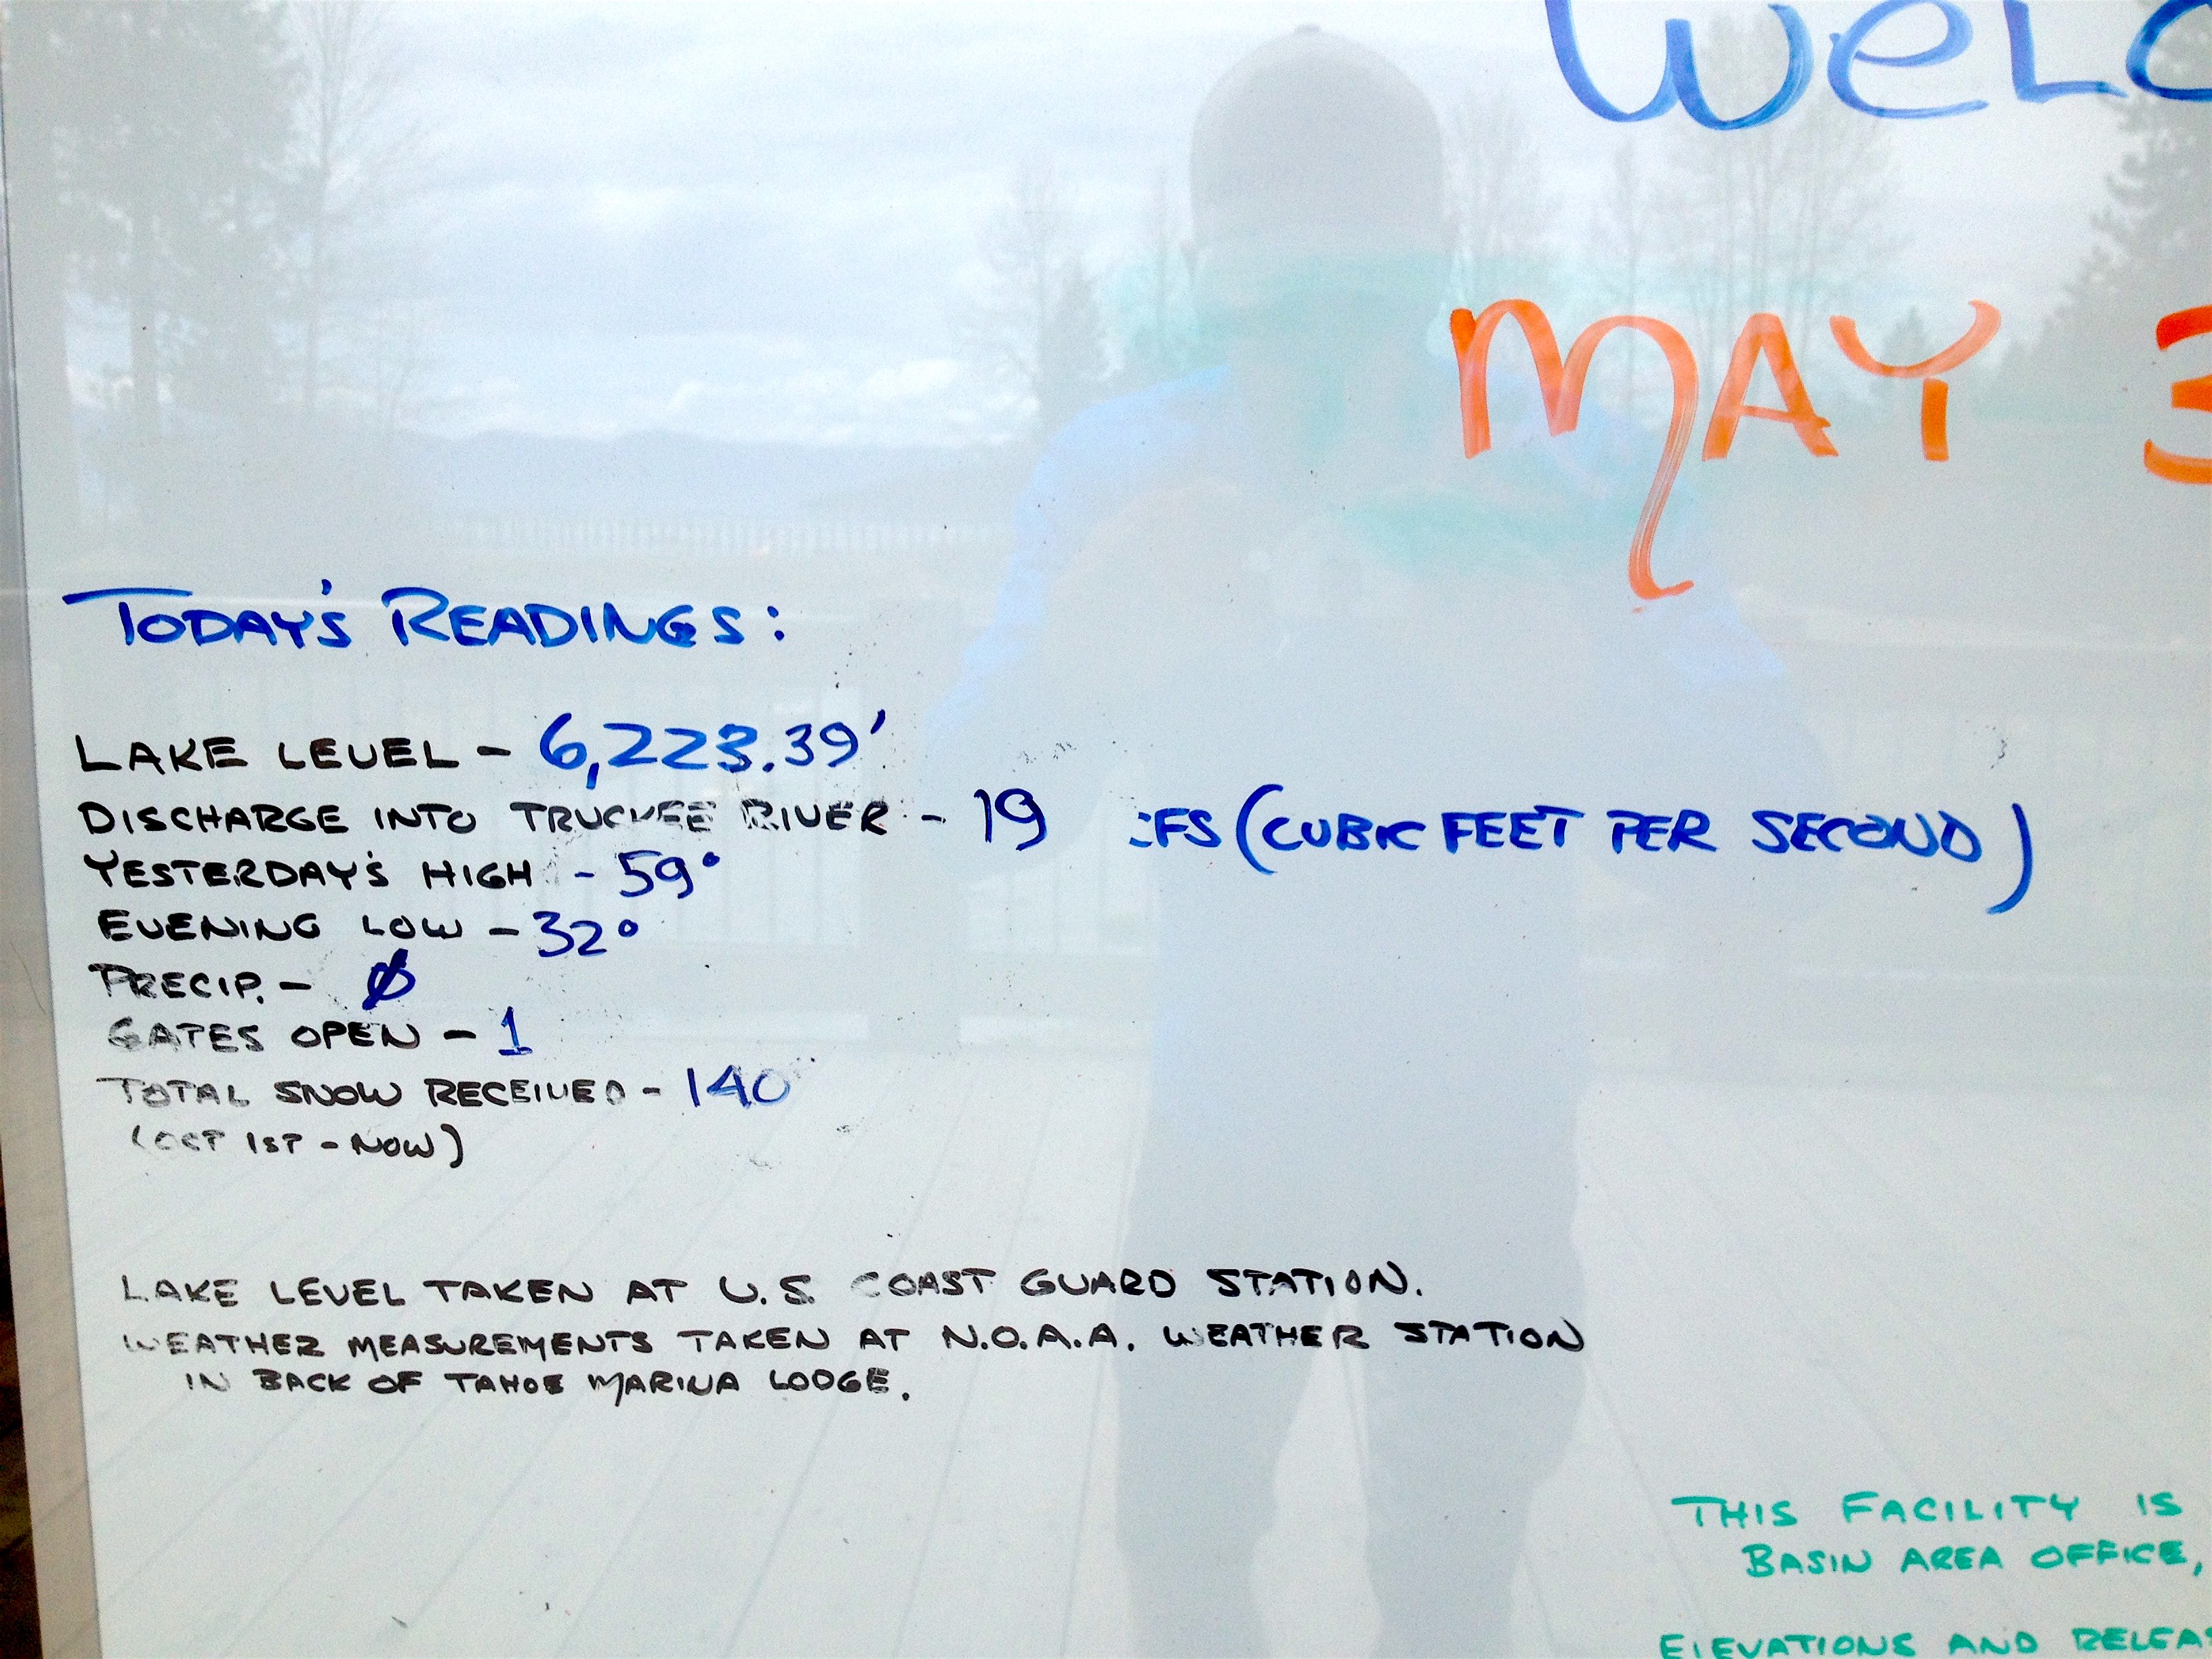 WELC
MAY 3
TODAY'S READINGS:
LAKE LEVEL - 6,223.39'
DISCHARGE INTO TRUCKEE RIVER - 19 CFS (CUBIC FEET PER SECOND)
YESTERDAY'S HIGH - 59°
EVENING LOW - 32°
PRECIP. - Ø
GATES OPEN - 1
TOTAL SNOW RECEIVED - 140"
(OCT 1ST - NOW)
LAKE LEVEL TAKEN AT U.S. COAST GUARD STATION.
WEATHER MEASUREMENTS TAKEN AT N.O.A.A. WEATHER STATION
IN BACK OF TAHOE MARINA LODGE.
THIS FACILITY IS
BASIN AREA OFFICE,
ELEVATIONS AND RELEAS